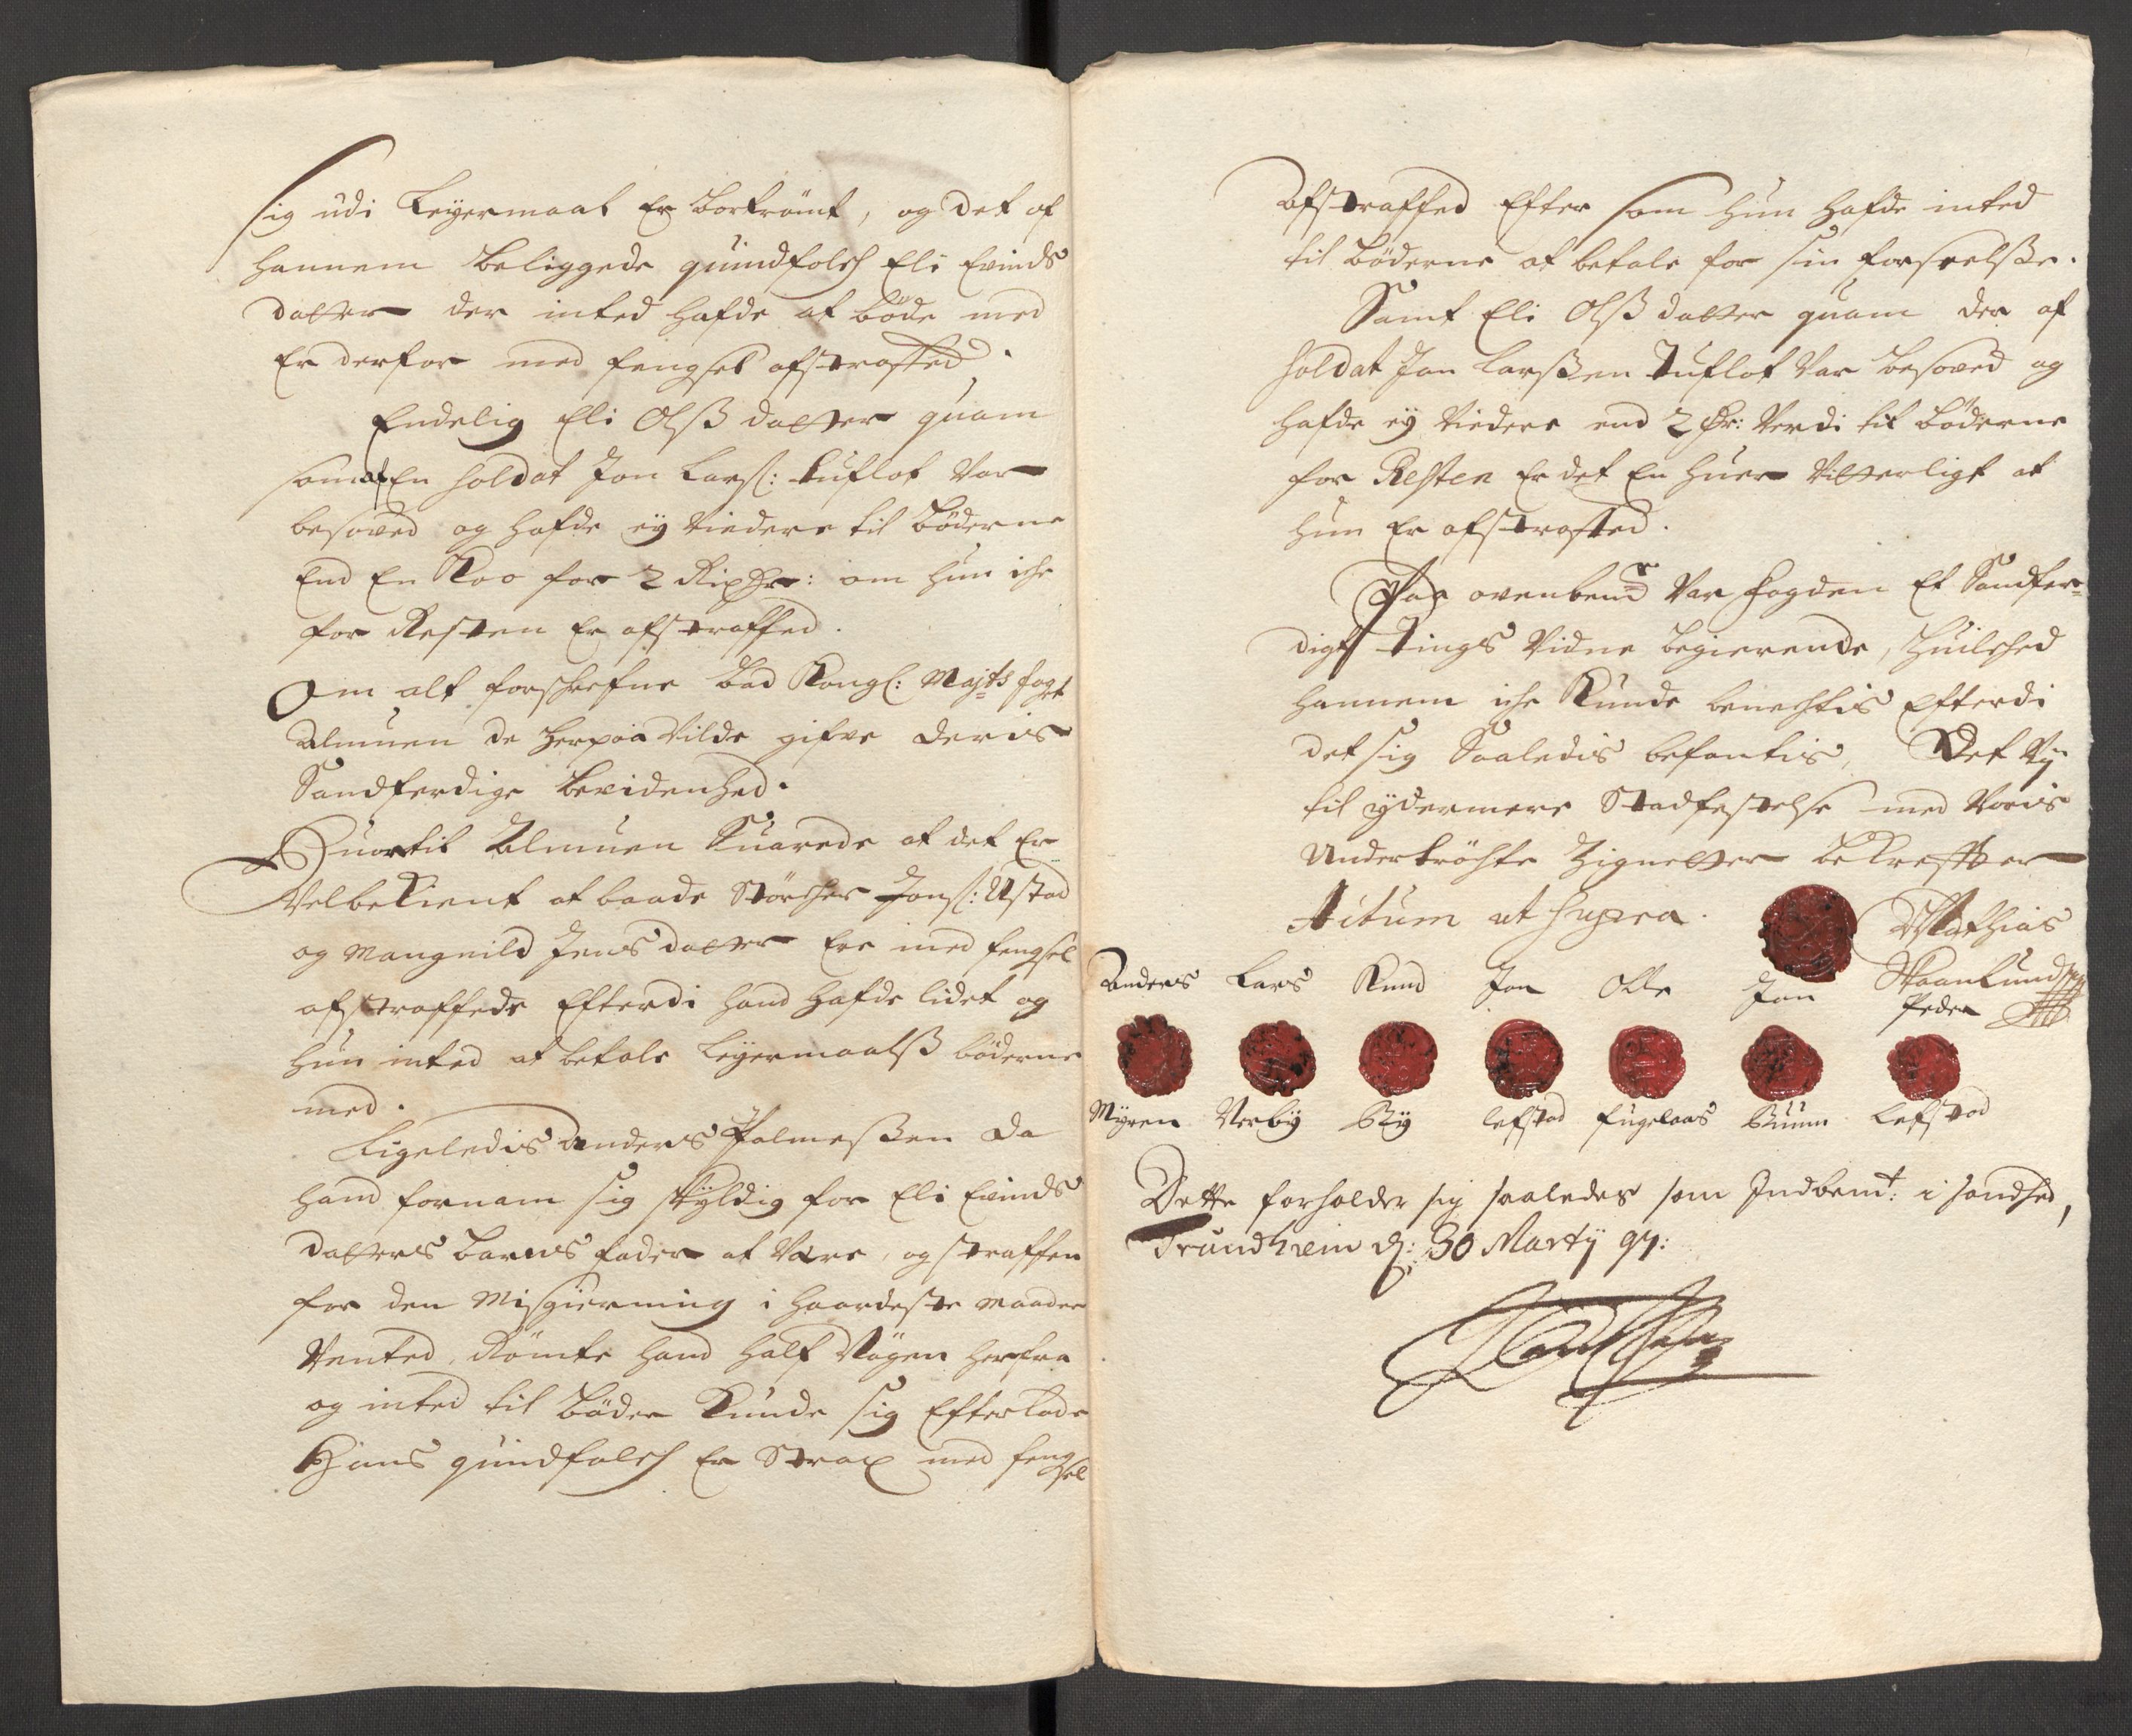 sig udi Leyermaal Er bortrömt, og det af
hannem beliggede quindfolch Eli Evinds
datter der inted hafde at böde med
Er derfor med fengsel afstraffed.
Endelig Eli Olß datter quam
som af En soldat Jon Larß: tuflot Var
besoved og hafde ey Viedere til böderne
End En Koo for 2 Rixdr: om hun iche
for Resten Er afstraffed.
Om alt forschrefne bad Kongl: Majts fogt
Almuen de herpaa Vilde gifve deris
Sandferdige bevidenhed.
Huortil Almuen Suarede at det Er
Velbekient at baade Störcher Jonß: Ustad
og Magnild Jens datter Ere med fengsel
afstraffede Efterdi hand hafde lidet og
hun inted at betale Leyermaalß böderne
med.
Ligeledis Anders Palmeßen da
hand fornam sig skyldig for Eli Evinds
datters barns fader at Være, og straffen
for den Misgierning i haardeste maader
Vented, Römte hand half Nögen herfra
og inted til böder Kunde sig Efterlade
Hans quindfolch Er Strax med fengsel
Afstraffed Efter som hun hafde inted
til böderne at betale for sin forseelße.
Samt Eli Olß datter quam der af
soldat Jon Larßen Tuflot Var besoved og
hafde ey Viedere end 2 Dr: Verdi til böderne
for Resten Er det En huer Vitterligt at
hun Er afstraffed.
Paa ovenbemt Var fogden Et Sandfer=
digt Tings Vidne begierende, huilched
hannem iche Kunde benechtis Efterdi
det sig Saaledis befantis, Det Vj
til ydermere Stadfestelse med Voris
Undertröchte Zignetter bekreffter
Actum ut supra.
Mathias
Anders Lars Knud Jon Olle Jon Peder
Myren Verby By Lefstad fugelaas Buum Lefstad
Dette forholder sig saaledes som Indbemt: i sandhed,
Trundhiem d: 30 Martij 97: